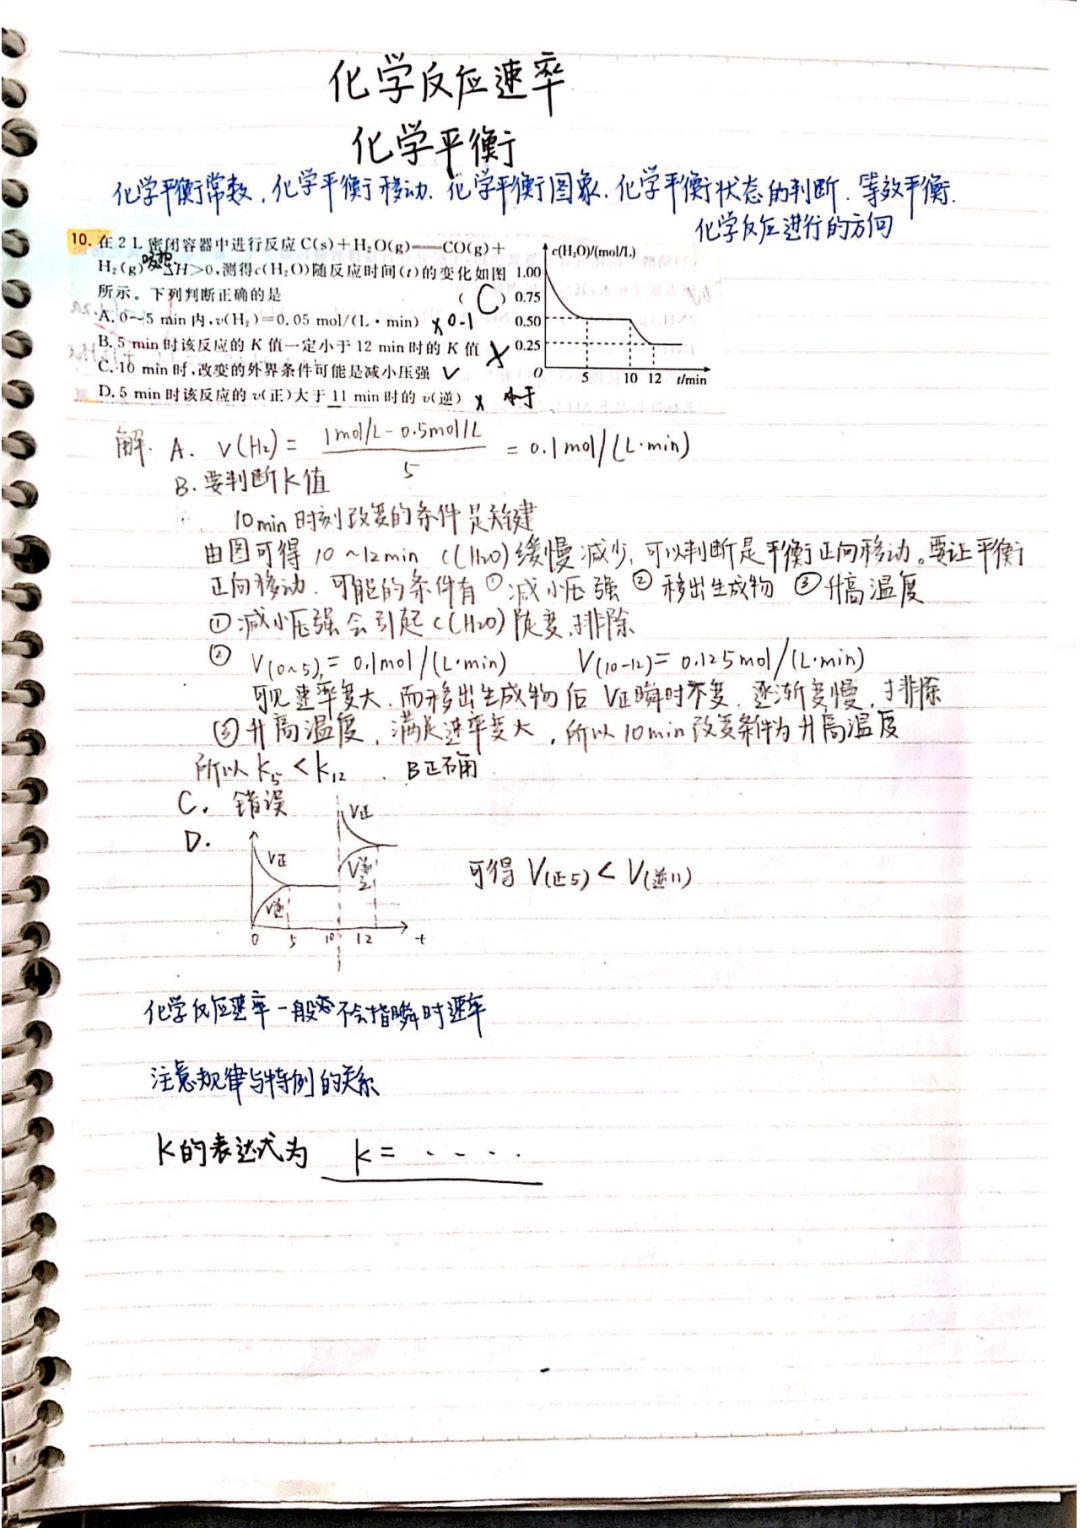 化学反应速率
化学平衡
化学平衡常数、化学平衡移动、化学平衡图象、化学平衡状态的判断、等效平衡、
化学反应进行的方向
10. 在 2 L 密闭容器中进行反应 C(s)+H₂O(g)══CO(g)+
H₂(g) ΔH>0,测得c(H₂O)随反应时间(t)的变化如图
吸热
所示。下列判断正确的是 ( C )
A. 0~5 min 内,v(H₂)=0.05 mol/(L·min) x 0.1
B. 5 min 时该反应的 K 值一定小于 12 min 时的 K 值 X
C. 10 min 时,改变的外界条件可能是减小压强 √
D. 5 min 时该反应的 v(正)大于 11 min 时的 v(逆) x 小于
c(H₂O)/(mol/L)
1.00
0.75
0.50
0.25
0 5 10 12 t/min
解. A. v(H₂) = 1mol/L-0.5mol/L / 5 = 0.1mol/(L·min)
B. 要判断K值
10min时刻改变的条件是关键
由图可得 10~12min c(H₂O)缓慢减少,可以判断是平衡正向移动。要让平衡
正向移动,可能的条件有 ①减小压强 ②移出生成物 ③升高温度
①减小压强会引起c(H₂O)陡变,排除
② V(0~5) = 0.1mol/(L·min) V(10-12) = 0.125mol/(L·min)
可见速率变大,而移出生成物后 V正瞬时不变,逐渐变慢,排除
③升高温度,满足速率变大,所以10min改变条件为升高温度
所以 K₅ < K₁₂ , B正确
C. 错误
D.
V正
V逆
V正
V逆
0 5 10 12 t
可得 V(正5) < V(逆11)
化学反应速率一般不会指瞬时速率
注意规律与特例的关系
K的表达式为 K= ····